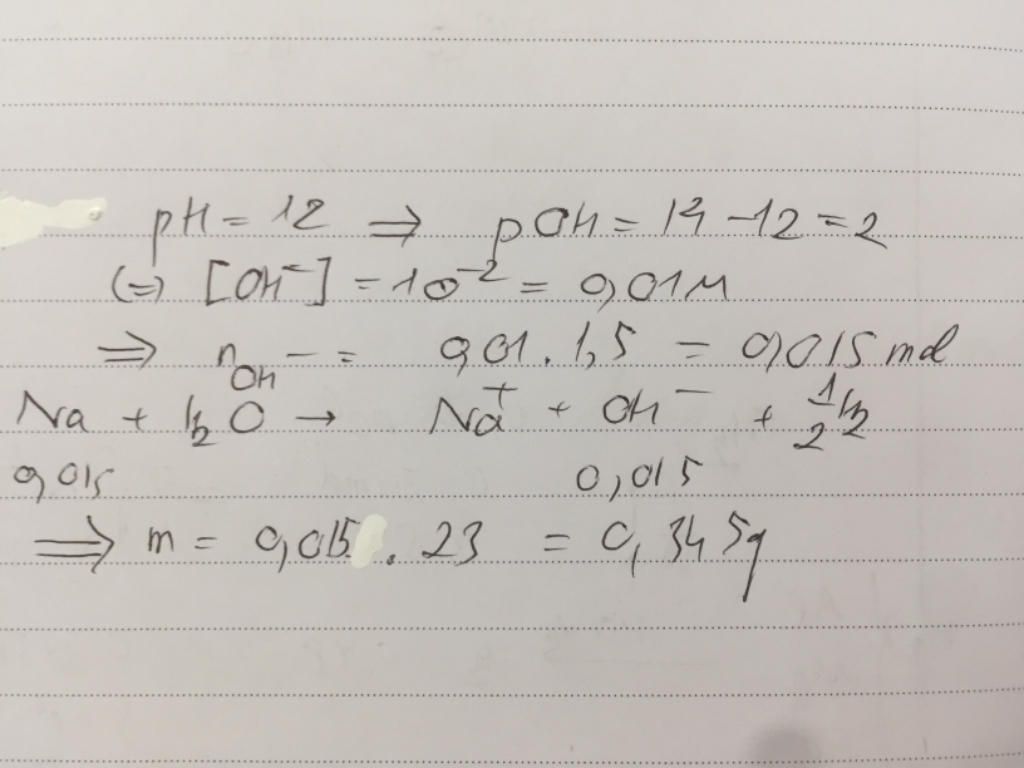 pH = 12 ⇒ pOH = 14 - 12 = 2
(=) [OH⁻] = 10⁻² = 0,01M
⇒ n_OH⁻ = 0,01 . 1,5 = 0,015 mol
Na + H₂O → Na⁺ + OH⁻ + 1/2 H₂
0,015 0,015
⇒ m = 0,015 . 23 = 0,345g